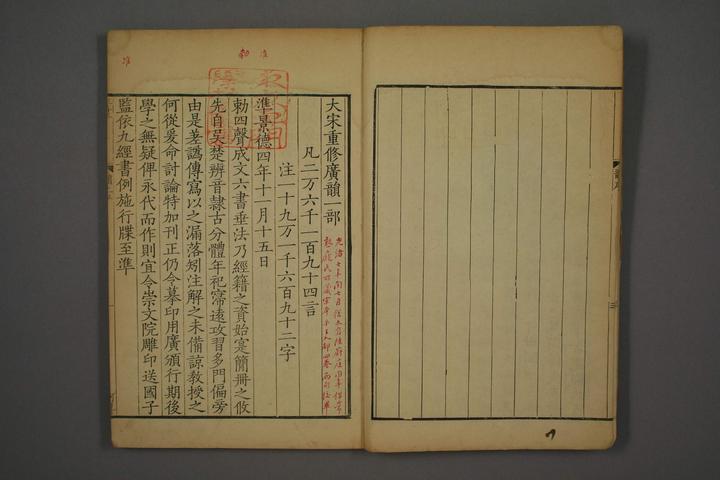 大宋重修廣韻一部
凡二万六千一百九十四言
注一十九万一千六百九十二字
準景德四年十一月十五日
勅四聲成文六書垂法乃經籍之資始寔簡冊之攸
先自吴楚辨音隷古分體年祀寖遠攻習多門偏旁
由是差譌傳寫以之漏落矧注解之未備諒教授之
何從爰命討論特加刊正仍令摹印用廣頒行期後
學之無疑俾永代而作則宜令崇文院雕印送國子
監依九經書例施行牒至準
勅 准
准